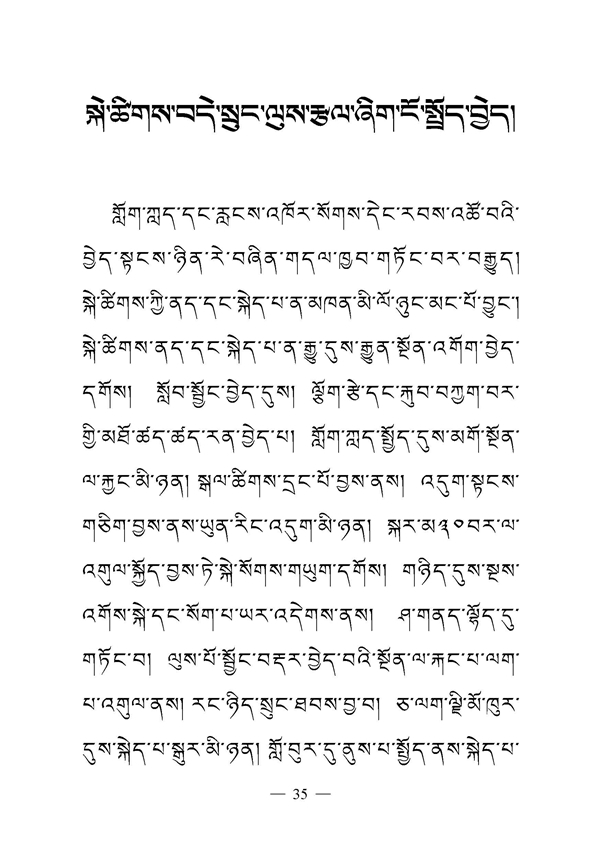 སྐེ་ཚིགས་བདེ་སྲུང་ལུས་རྩལ་ཞིག་ངོ་སྤྲོད་བྱེད།
གློག་ཀླད་དང་རླངས་འཁོར་སོགས་དེང་རབས་འཚོ་བའི་
བྱེད་སྟངས་ཉིན་རེ་བཞིན་གདལ་ཁྱབ་གཏོང་བར་བརྒྱུད།
སྐེ་ཚིགས་ཀྱི་ནད་དང་སྐེད་པ་ན་མཁན་མི་ལོ་ཉུང་མང་པོ་བྱུང་།
སྐེ་ཚིགས་ནད་དང་སྐེད་པ་ན་རྒྱུ་དུས་རྒྱུན་སྔོན་འགོག་བྱེད་
དགོས། སློབ་སྦྱོང་བྱེད་དུས། ལྕོག་རྩེ་དང་རྐུབ་བཀྱག་བར་
གྱི་མཐོ་ཚད་ཚད་རན་བྱེད་པ། གློག་ཀླད་སྤྱོད་དུས་མགོ་སྔོན་
ལ་རྐྱང་མི་ཉན། སྒལ་ཚིགས་དྲང་པོ་བྱས་ནས། འདུག་སྟངས་
གཅིག་བྱས་ནས་ཡུན་རིང་འདུག་མི་ཉན། སྐར་མ༣༠བར་ལ་
འགུལ་སྐྱོད་བྱས་ཏེ་སྐེ་སོགས་གཡུག་དགོས། གཉིད་དུས་སྔས་
འགོས་སྐེ་དང་སོག་པ་ཡར་འདེགས་ནས། ཤ་གནད་ལྷོད་དུ་
གཏོང་བ། ལུས་པོ་སྦྱོང་བརྡར་བྱེད་བའི་སྔོན་ལ་རྐང་པ་ལག་
པ་འགུལ་ནས། རང་ཉིད་སྲུང་ཐབས་བྱ་བ། ཅ་ལག་ལྗི་མོ་ཁུར་
དུས་སྐེད་པ་སྒུར་མི་ཉན། གློ་བུར་དུ་ནུས་པ་སྤྱོད་ནས་སྐེད་པ་
— 35 —